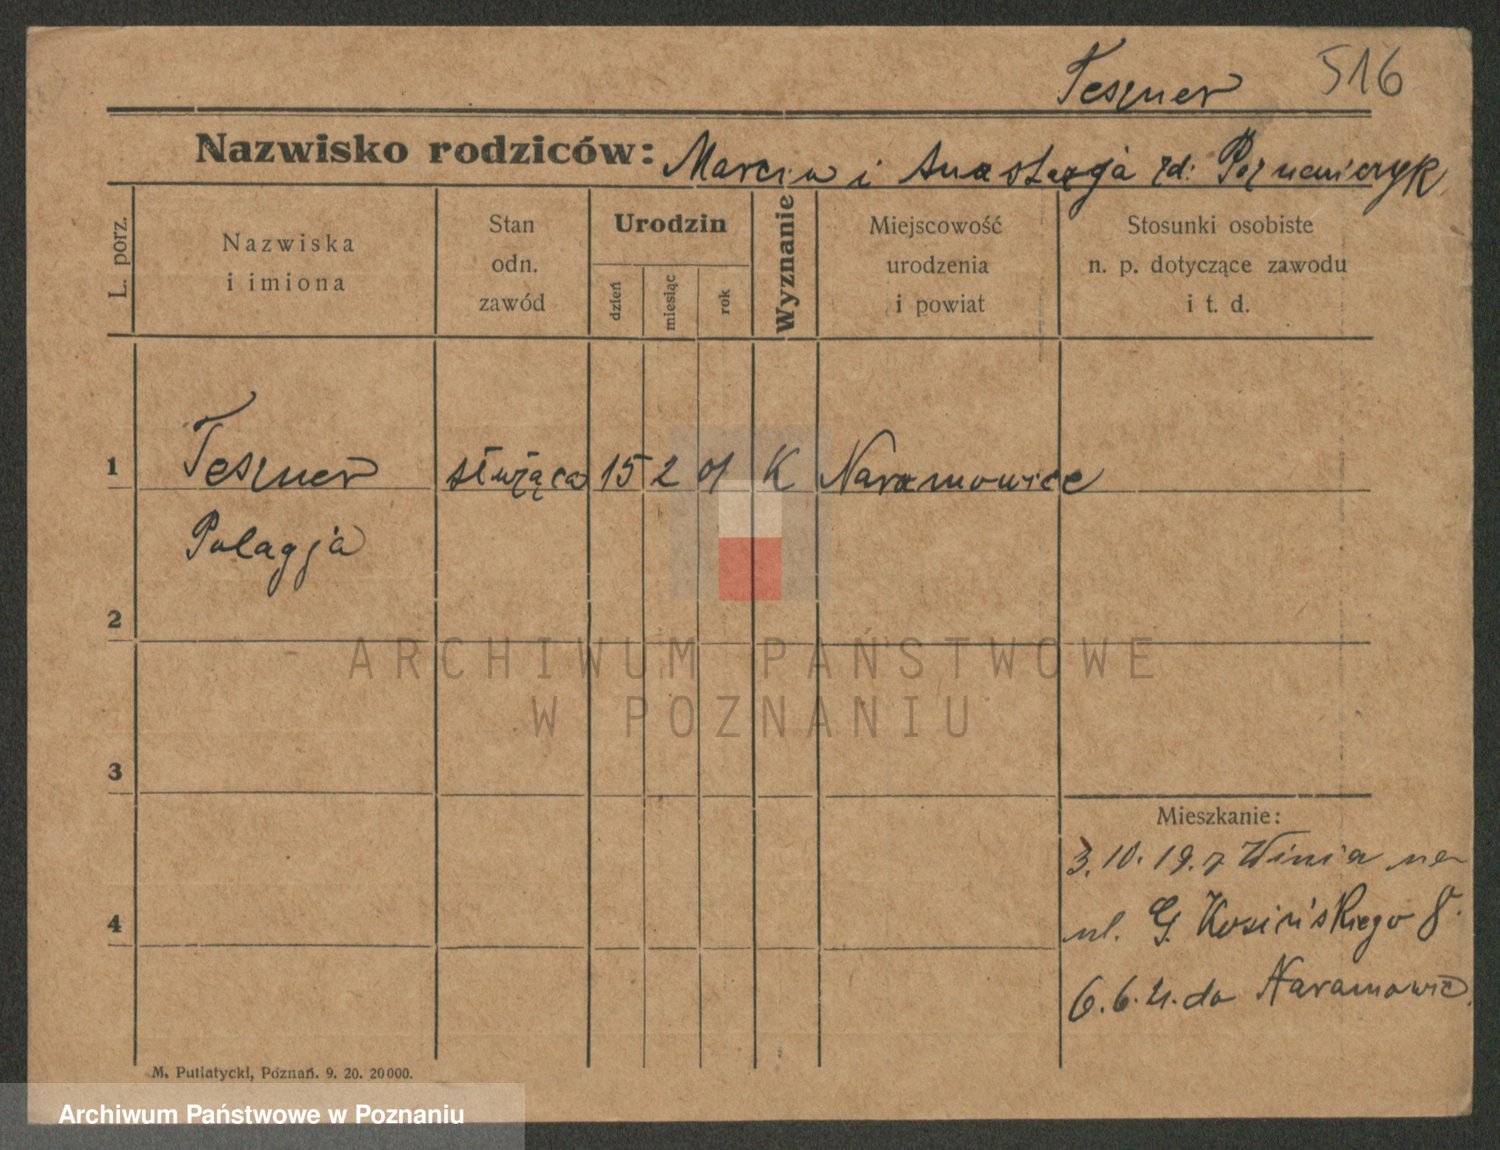 Teszner 516
Nazwisko rodziców: Marcin i Anastazja zd: Poznanierzyk
L. porz.
Nazwiska
i imiona
Stan
odn.
zawód
Urodzin
dzień
miesiąc
rok
Wyznanie
Miejscowość
urodzenia
i powiat
Stosunki osobiste
n. p. dotyczące zawodu
i t. d.
1 Teszner służąca 15 2 01 K Naramowice
Pelagja
2
3
4
Mieszkanie:
3.10.19. z Winia na
ul. G. Kosińskiego 8.
6.6.21. do Naramowic.
M. Putiatycki, Poznań. 9. 20. 20000.
ARCHIWUM PAŃSTWOWE
W POZNANIU
Archiwum Państwowe w Poznaniu